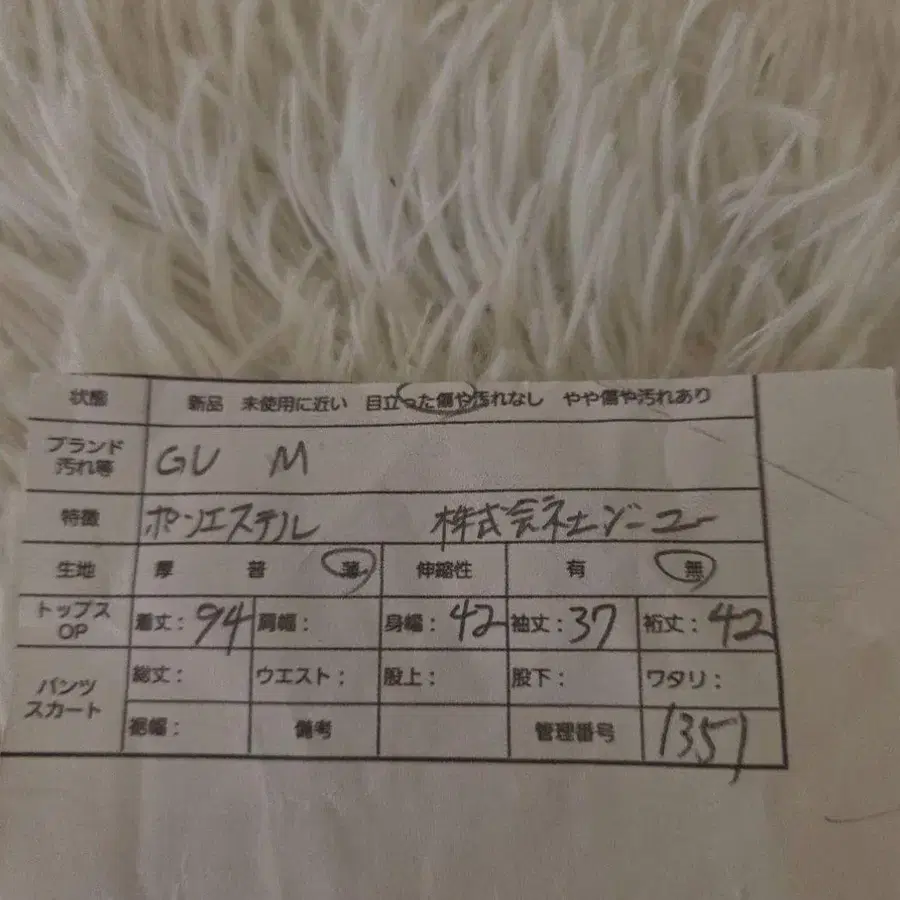 状態 新品 未使用に近い 目立った傷や汚れなし やや傷や汚れあり
ブランド
汚れ等 GU M
特徴 ポリエステル 株式会社ジーユー
生地 厚 普 薄 伸縮性 有 無
トップス
OP 着丈：94 肩幅： 身幅：42 袖丈：37 裄丈：42
パンツ
スカート 総丈： ウエスト： 股上： 股下： ワタリ：
裾幅： 備考 管理番号 1351